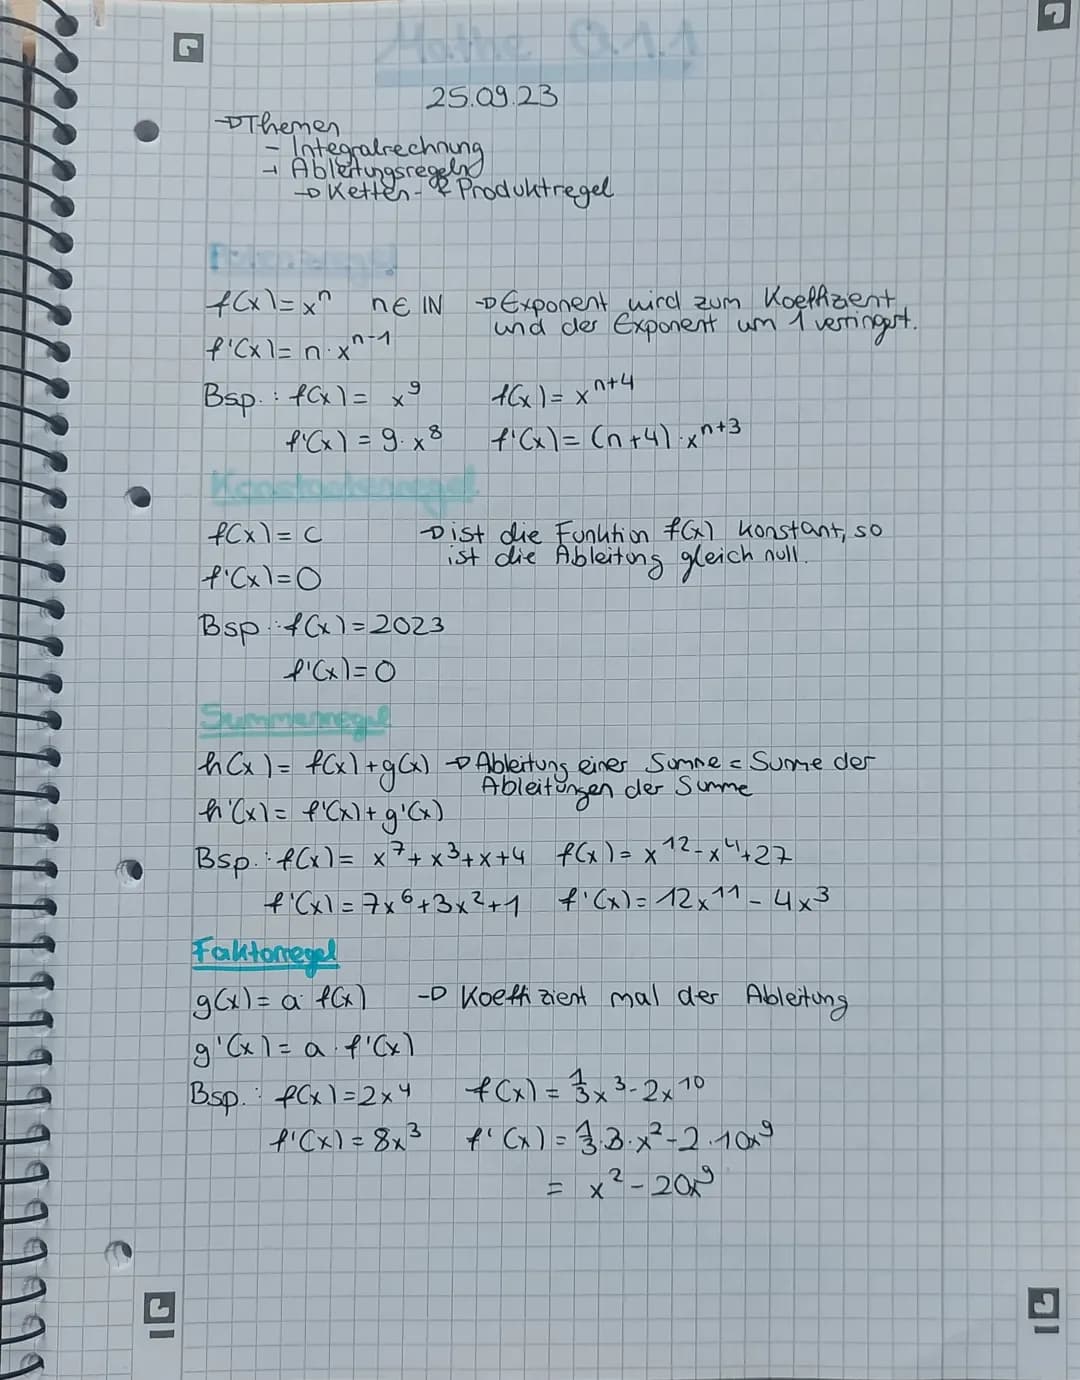 Mathe Q.1.1
25.09.23
→Themen
- Integralrechnung
→ Ableitungsregeln
→ Ketten- & Produktregel
Potenzregel
f(x)= xⁿ n∈ℕ →Exponent wird zum Koeffizient
und der Exponent um 1 verringert.
f'(x)= n·xⁿ⁻¹
Bsp.: f(x)= x⁹ f(x)= xⁿ⁺⁴
f'(x) = 9·x⁸ f'(x)= (n+4)·xⁿ⁺³
Konstantenregel
f(x)= c →ist die Funktion f(x) konstant, so
ist die Ableitung gleich null.
f'(x)=0
Bsp.: f(x)=2023
f'(x)=0
Summenregel
h(x)= f(x)+g(x) → Ableitung einer Summe = Summe der
Ableitungen der Summe
h'(x)= f'(x)+g'(x)
Bsp.: f(x)= x⁷+x³+x+4 f(x)= x¹²-x⁴+27
f'(x)=7x⁶+3x²+1 f'(x)=12x¹¹-4x³
Faktorregel
g(x)= a·f(x) → Koeffizient mal der Ableitung
g'(x)= a·f'(x)
Bsp.: f(x)=2x⁴ f(x)= ⅓x³-2x¹⁰
f'(x)=8x³ f'(x)= ⅓·3·x²-2·10x⁹
= x²-20x⁹